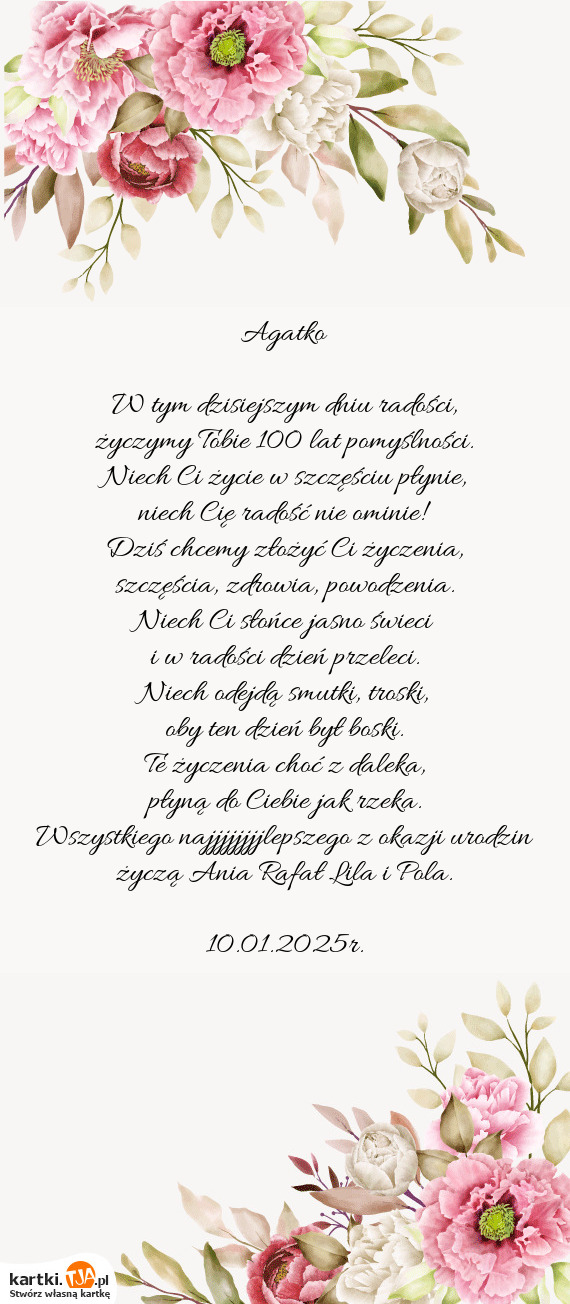 Agatko
W tym dzisiejszym dniu radości,
życzymy Tobie 100 lat pomyślności.
Niech Ci życie w szczęściu płynie,
niech Cię radość nie ominie!
Dziś chcemy złożyć Ci życzenia,
szczęścia, zdrowia, powodzenia.
Niech Ci słońce jasno świeci
i w radości dzień przeleci.
Niech odejdą smutki, troski,
oby ten dzień był boski.
Te życzenia choć z daleka,
płyną do Ciebie jak rzeka.
Wszystkiego najjjjjjjjlepszego z okazji urodzin
życzą Ania Rafał Lila i Pola.
10.01.2025r.
kartki.TJA.pl
Stwórz własną kartkę